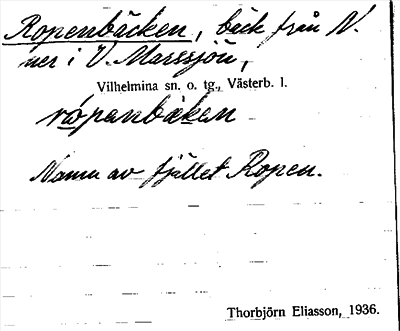 Ropenbäcken, bäck från N.
ner i V. Marssjön,
Vilhelmina sn. o. tg., Västerb. l.
rópanbäken
Namn av fjället Ropen.
Thorbjörn Eliasson, 1936.